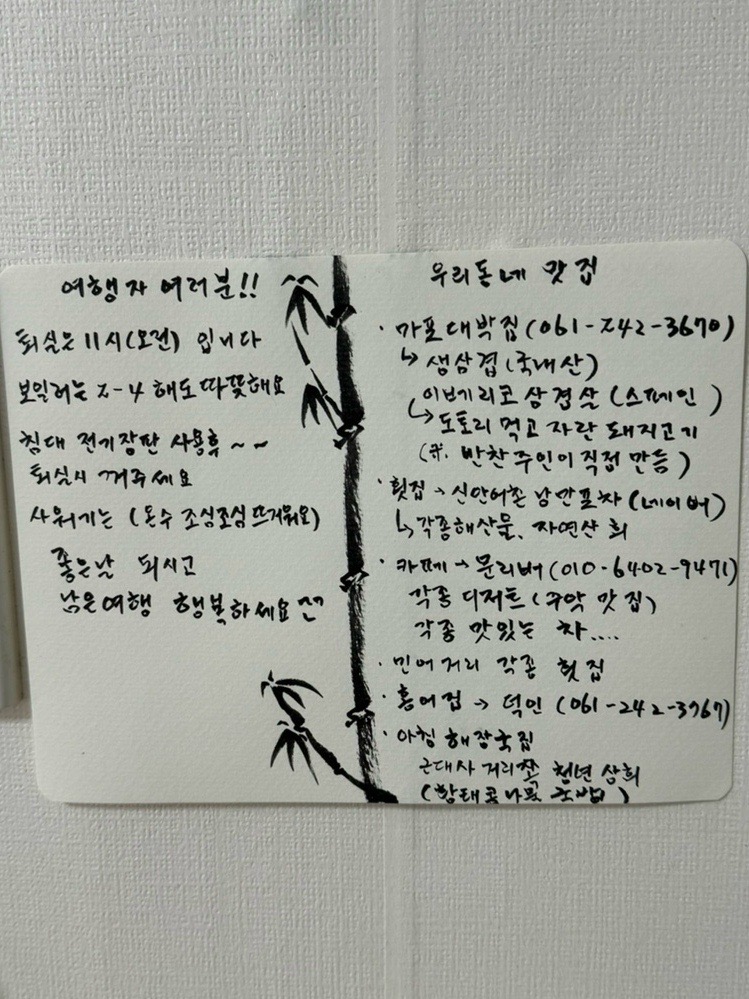 여행자 여러분!!
퇴실은 11시(오전) 입니다
보일러는 2-4 해도 따뜻해요
침대 전기장판 사용후 ~ ~
퇴실시 꺼주세요
샤워기는 (온수 조심조심 뜨거워요)
좋은날 되시고
남은여행 행복하세요
우리동네 맛집
· 가포대박집(061-242-3670)
↳ 생삼겹(국내산)
이베리코 삼겹살 (스페인 )
↳ 도토리 먹고 자란 돼지고기
(※. 반찬 주인이 직접 만듬)
· 횟집 → 신안어촌 낭만포차 (네이버)
↳ 각종해산물, 자연산 회
· 카페 → 문리버(010-6402-9471)
각종 디저트 (수악 맛집)
각종 맛있는 차....
· 민어거리 각종 횟집
· 홍어집 → 덕인 (061-242-3767)
· 아침 해장국집
근대사 거리쪽 천년 상회
(황태콩나물 )